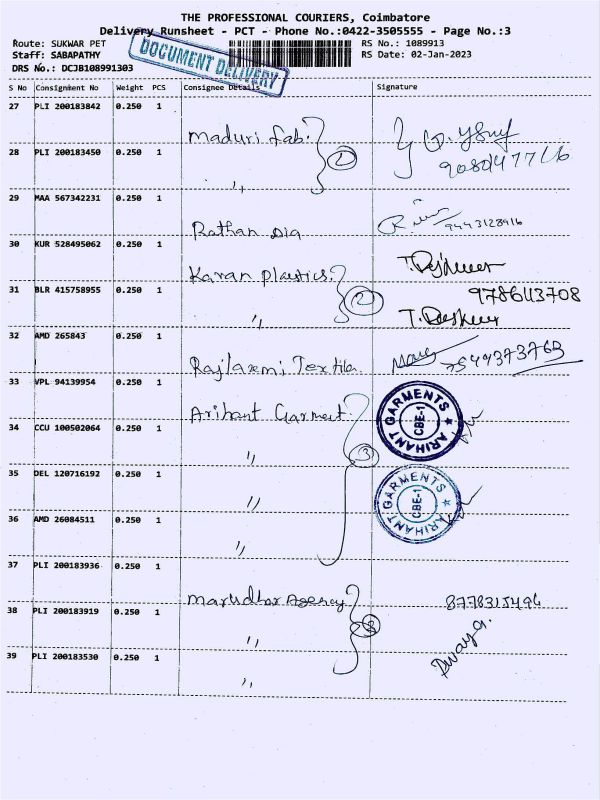 THE PROFESSIONAL COURIERS, Coimbatore
Delivery Runsheet - PCT - Phone No.:0422-3505555 - Page No.:3
Route: SUKWAR PET
RS No.: 1089913
Staff: SABAPATHY
RS Date: 02-Jan-2023
DRS No.: DCJB108991303
DOCUMENT DELIVERY
S No Consignment No Weight PCS Consignee Details Signature
27 PLI 200183842 0.250 1
Maduri fab. 2
28 PLI 200183450 0.250 1
"
29 MAA 567342231 0.250 1
Rathan Dia 9443128916
30 KUR 528495062 0.250 1
Karan Plastics.
31 BLR 415758955 0.250 1
" 2 9786113708
32 AMD 265843 0.250 1
Rajlaxmi Textile
33 VPL 94139954 0.250 1
Arihant Garment
ARIHANT GARMENTS CBE-1
34 CCU 100502064 0.250 1
" 3
35 DEL 120716192 0.250 1
"
ARIHANT GARMENTS CBE-1
36 AMD 26084511 0.250 1
"
37 PLI 200183936 0.250 1
Marudhar Agency 8778315496
38 PLI 200183919 0.250 1
" 3
39 PLI 200183530 0.250 1
"